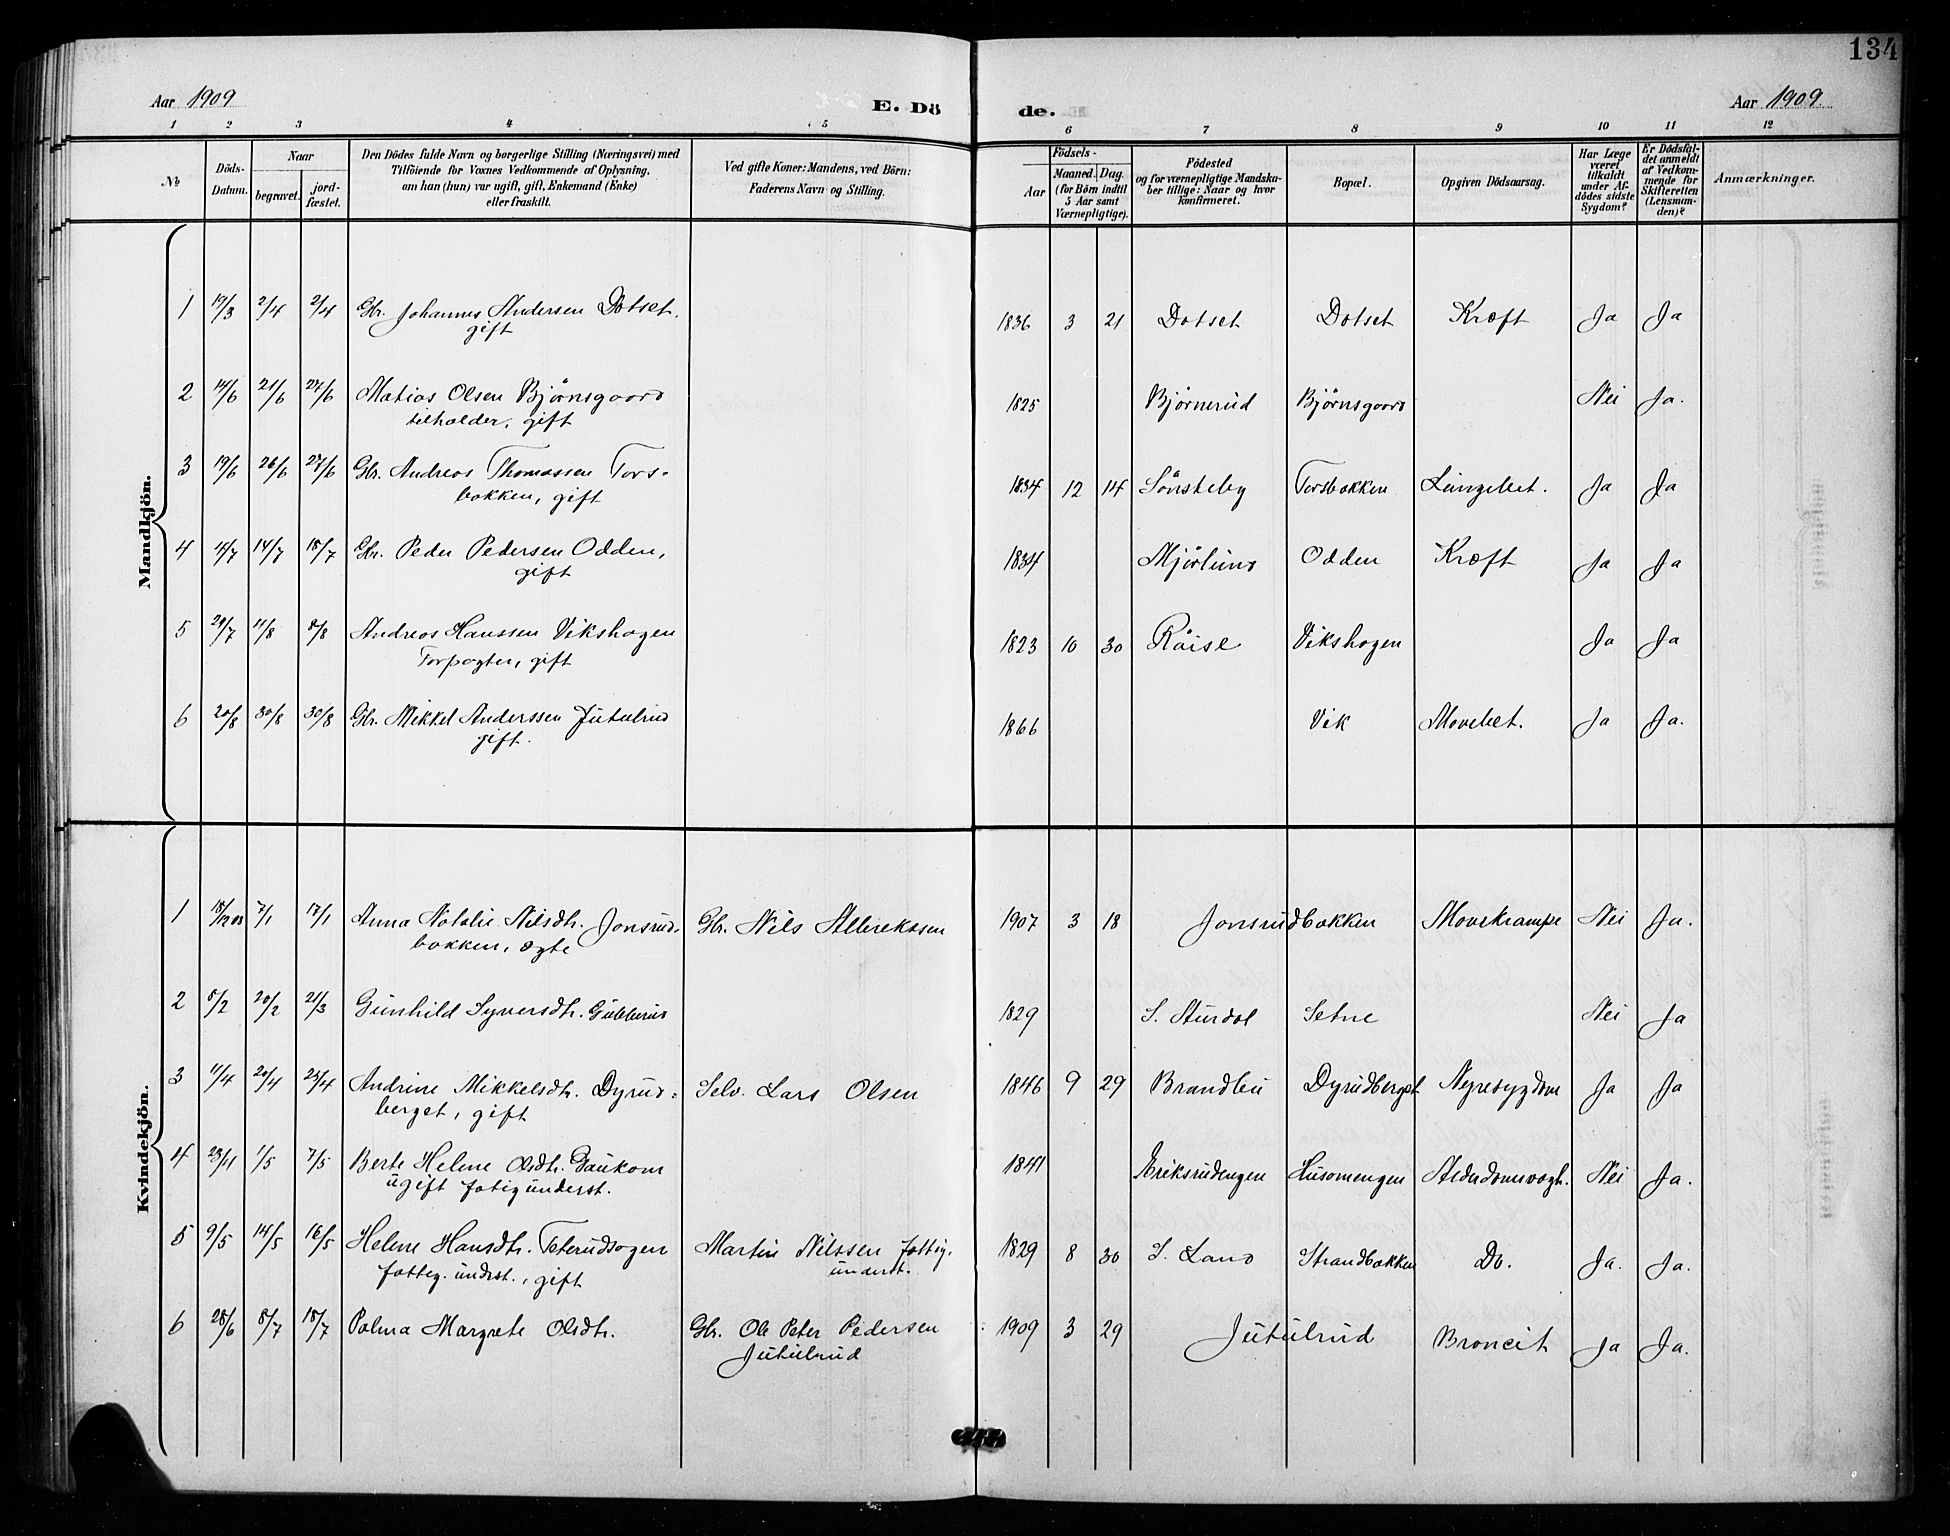 134
Aar 1909
E. Dö
de.
Aar 1909
1 2 3 4 5 6 7 8 9 10 11 12
No
Döds-Datum.
Naar
begravet.
jord-fæstet.
Den Dödes fulde Navn og borgerlige Stilling (Næringsvei) med
Tilföiende for Voxnes Vedkommende af Oplysning,
om han (hun) var ugift, gift, Enkemand (Enke)
eller fraskilt.
Ved gifte Koner: Mandens, ved Börn:
Faderens Navn og Stilling.
Födsels-
Aar
Maaned. Dag.
(for Börn indtil
5 Aar samt
Værnepligtige).
Födested
og for værnepligtige Mandska-
ber tillige: Naar og hvor
konfirmeret.
Bopæl.
Opgiven Dödsaarsag.
Har Læge
været
tilkaldt
under Af-
dödes sidste
Sygdom?
Er Dödsfal-
det anmeldt
af Vedkom-
mende for
Skifteretten
(Lensman-
den)?
Anmærkninger.
Mandkjön.
1 19/3 2/4 2/4 Gbr. Johannes Andersen Dotset. 1836 3 21 Dotset Dotset Kræft Ja Ja
gift
2 14/6 21/6 27/6 Matias Olsen Bjørnsgaard 1825 Bjørnerud Bjørnsgaard Nei Ja.
gift
3 19/6 26/6 27/6 Gbr. Andreas Thomassen Tors- 1834 12 14 Sönsteby Torsbakken Lungebet. Ja Ja
bakken, gift
4 14/7 18/7 Gbr. Peder Pedersen Odden, 1834 Mjörlund Odden Kræft Ja Ja
gift
5 29/7 11/8 8/8 Andreas Hanssen Vikshagen 1823 10 30 Röise Vikshagen Ja Ja
gift
6 20/8 30/8 30/8 Gbr. Mikkel Anderssen Jutulrud 1866 Vik Mavebet. Ja Ja.
gift.
Kvindekjön.
1 18/12 08 7/1 17/1 Anna Natalie Nilsdtr. Jonsrud- Gbr. Nils 1907 3 18 Jonsrudbakken Mavekrampe Nei Ja.
bakken, ægte
2 5/2 20/2 21/3 Gunhild Syversdtr. Gubberud 1829 S. Aurdal Setne Nei Ja
3 11/4 20/4 25/4 Andrine Mikkelsdtr. Dyrud- Selv. Lars Olsen 1846 9 29 Brandbu Dyrudberget Nyresygdom Ja Ja
berget, gift
4 1/5 7/5 Berte Helene Olsdtr. Gaukom 1841 Eriksrudengen Husomengen Alderdomssvagh. Nei Ja.
ugift fatigunderst.
5 9/5 14/5 16/5 Helene Hansdtr. Teterudsagen Martin Nilssen fattig. 1829 8 30 S. Land Strandbakken Do. Ja. Ja.
fatteg. underst., gift underst.
6 28/6 8/7 18/7 Palma Margrete Olsdtr. Gbr. Ole Peter Pedersen 1909 3 29 Jutulrud Broncit Ja Ja.
Jutulrud